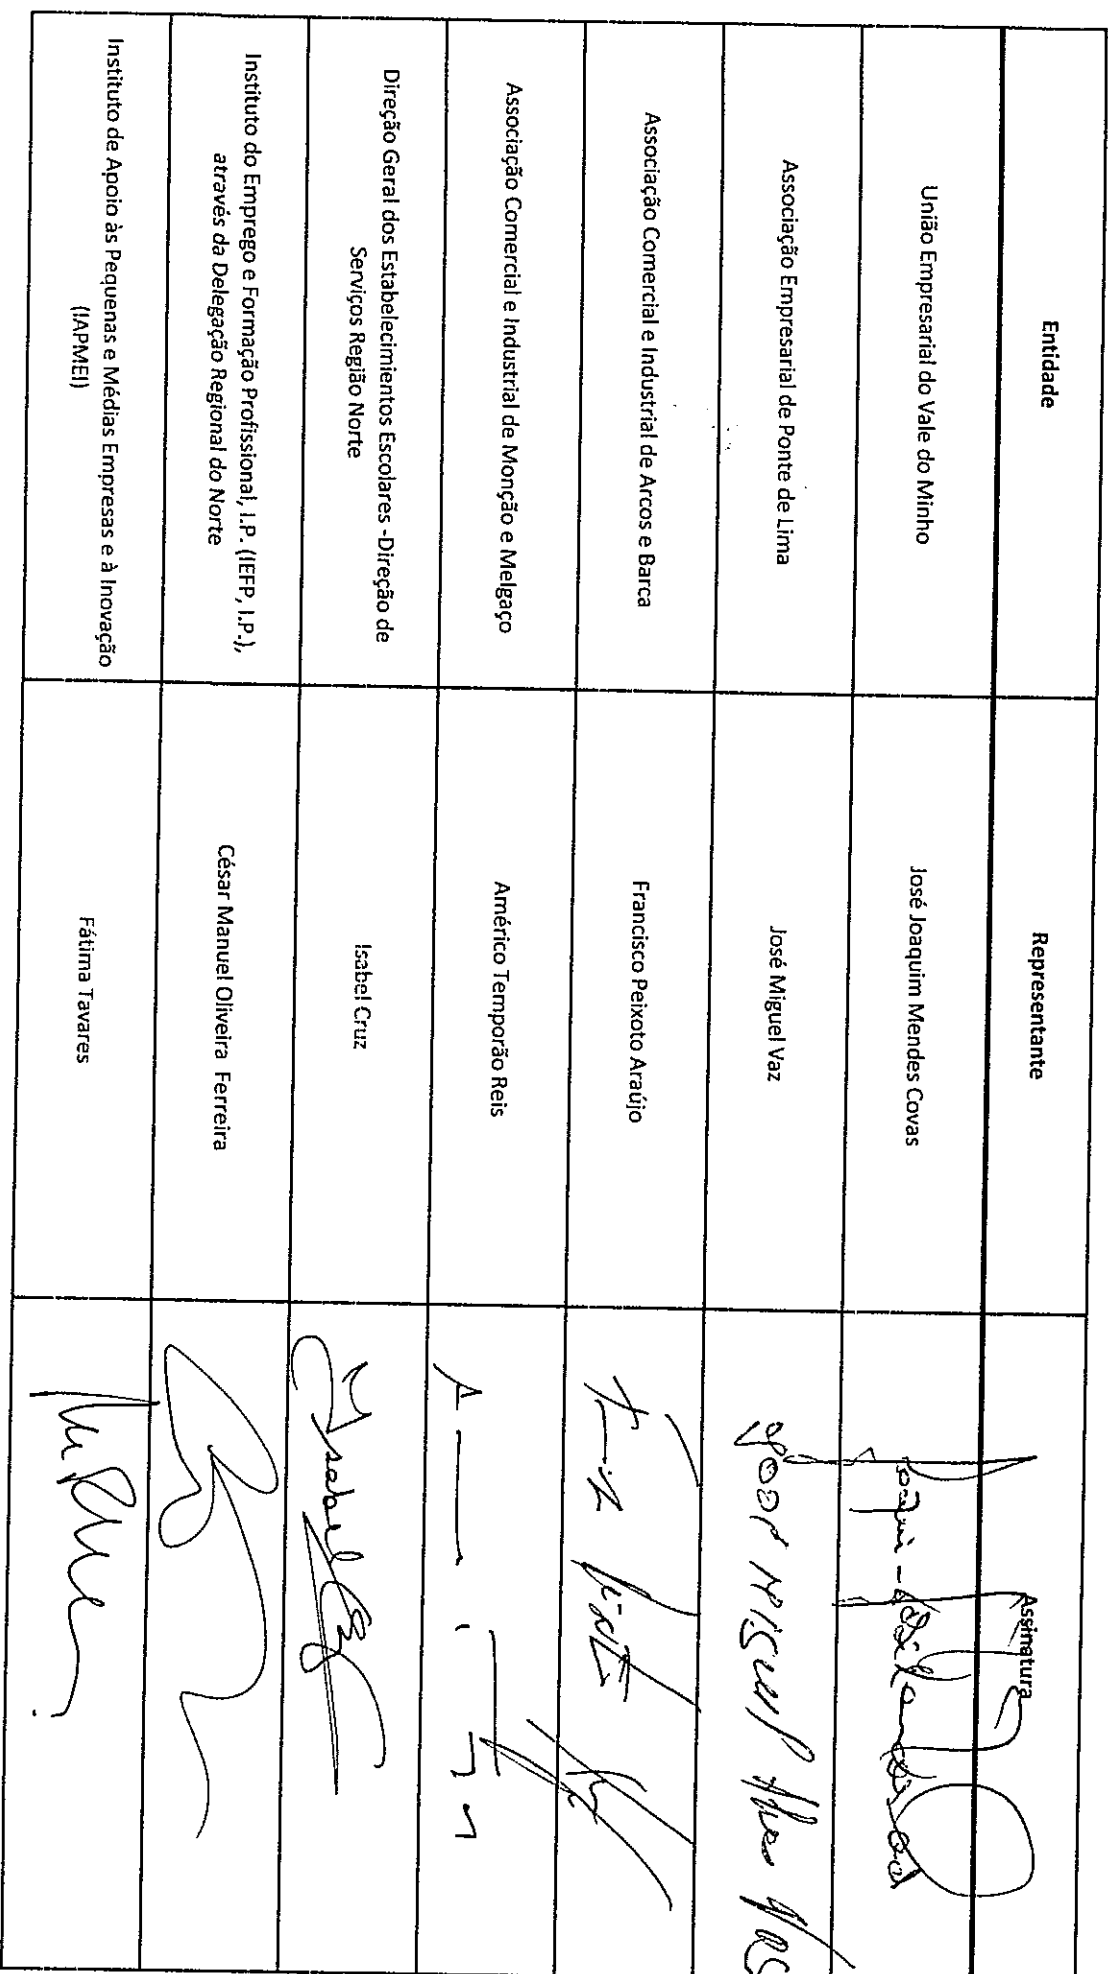 Entidade
Representante
Assinatura
União Empresarial do Vale do Minho
José Joaquim Mendes Covas
Associação Empresarial de Ponte de Lima
José Miguel Vaz
José Miguel
Associação Comercial e Industrial de Arcos e Barca
Francisco Peixoto Araújo
Associação Comercial e Industrial de Monção e Melgaço
Américo Temporão Reis
Direção Geral dos Estabelecimientos Escolares -Direção de
Serviços Região Norte
Isabel Cruz
Isabel Cruz
Instituto do Emprego e Formação Profissional, I.P. (IEFP, I.P.),
através da Delegação Regional do Norte
César Manuel Oliveira Ferreira
Instituto de Apoio às Pequenas e Médias Empresas e à Inovação
(IAPMEI)
Fátima Tavares